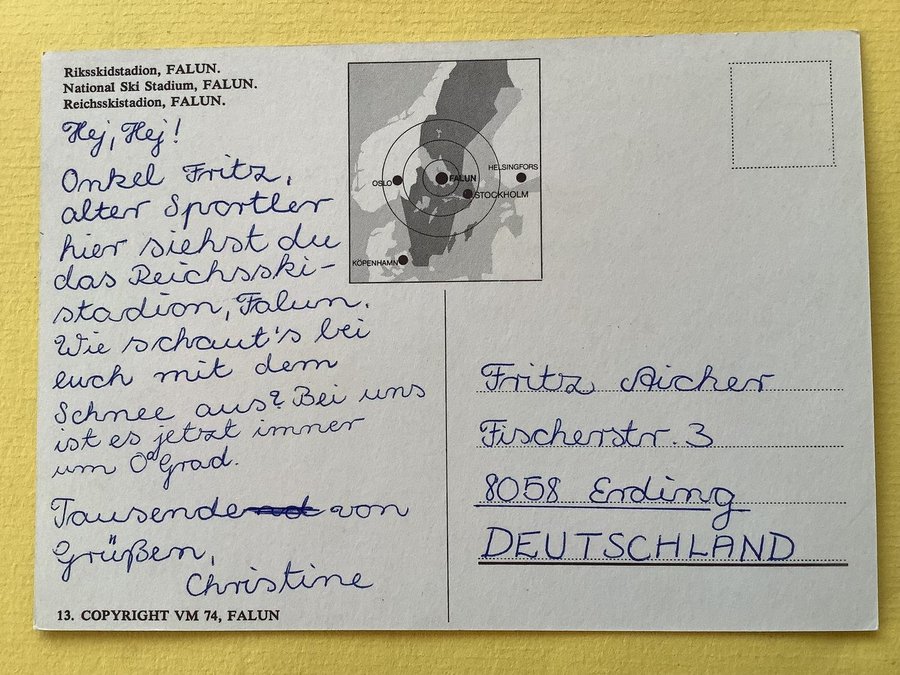 Riksskidstadion, FALUN.
National Ski Stadium, FALUN.
Reichsskistadion, FALUN.
Hej, Hej!
Onkel Fritz,
alter Sportler
hier siehst du
das Reichsski-
stadion, Falun.
Wie schaut's bei
euch mit dem
Schnee aus? Bei uns
ist es jetzt immer
um 0° Grad.
Tausende von
Grüßen,
Christine
13. COPYRIGHT VM 74, FALUN
HELSINGFORS
OSLO
FALUN
STOCKHOLM
KÖPENHAMN
Fritz Aicher
Fischerstr. 3
8058 Erding
DEUTSCHLAND